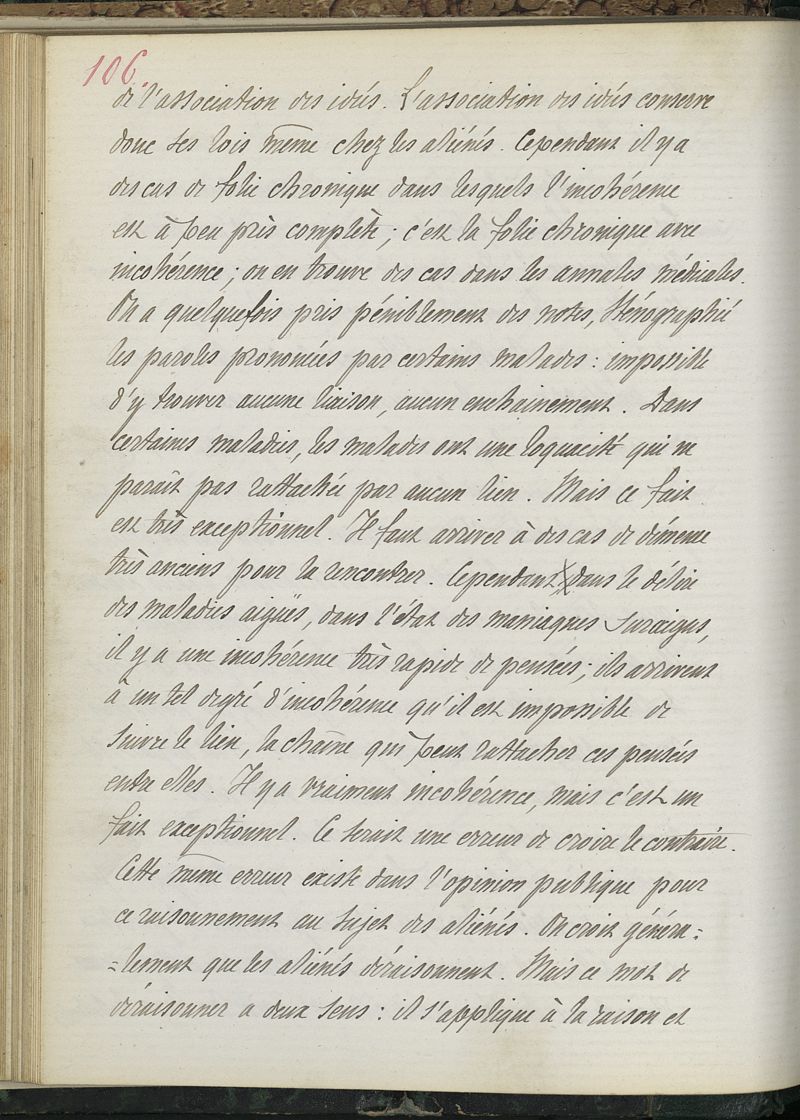 106.
de l'association des idées. L'association des idées conserve
donc ses lois même chez les aliénés. Cependant il y a
des cas de folie chronique dans lesquels l'incohérence
est à peu près complète ; c'est la folie chronique avec
incohérence ; on en trouve des cas dans les annales médicales.
On a quelquefois pris péniblement des notes, sténographié
les paroles prononcées par certains malades : impossible
d'y trouver aucune liaison, aucun enchainement. Dans
certaines maladies, les malades ont une loquacité qui ne
paraît pas rattachée par aucun lien. Mais ce fait
est très exceptionnel. Il faut arriver à des cas de démence
très anciens pour la rencontrer. Cependant dans le délire
des maladies aigües, dans l'état des maniaques suraigus,
il y a une incohérence très rapide de pensées ; ils arrivent
à un tel degré d'incohérence qu'il est impossible de
suivre le lien, la chaîne qui peut rattacher ces pensées
entre elles. Il y a vraiment incohérence, mais c'est un
fait exceptionnel. Ce serait une erreur de croire le contraire.
Cette même erreur existe dans l'opinion publique pour
ce raisonnement au sujet des aliénés. On croit généra=
=lement que les aliénés déraisonnent. Mais ce mot de
déraisonner a deux sens : il s'applique à la raison et